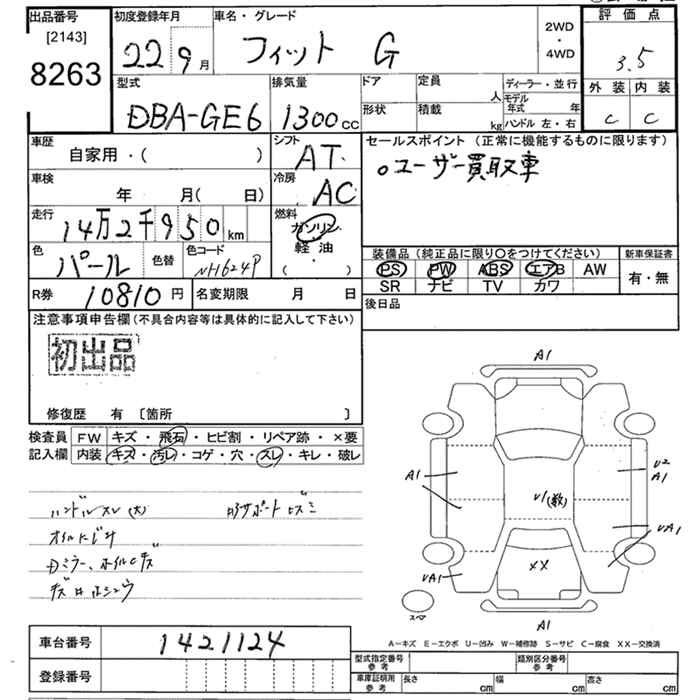 出品番号 初度登録年月 車名・グレード 2WD・4WD 評価点
[2143]
8263 22 9月 フィット G 3.5
型式 排気量 ドア 定員 人 ディーラー・並行 外装 内装
DBA-GE6 1300cc 形状 積載 kg モデル年式 年 C C
ハンドル 左・右
車歴 自家用・( ) シフト AT セールスポイント (正常に機能するものに限ります)
車検 年 月( 日) 冷房 AC ○ユーザー買取車
走行 14万2千950km 燃料 ガソリン
軽油
( )
色 パール 色替 色コード NH624P 装備品 (純正品に限り○をつけてください) 新車保証書
PS PW ABS エアB AW 有・無
SR ナビ TV カワ
R券 10810円 名変期限 月 日 後日品
注意事項申告欄(不具合内容等は具体的に記入して下さい)
初出品
修復歴 有 〔箇所 〕
検査員 FW キズ・飛石・ヒビ割・リペア跡・×要
記入欄 内装 キズ・汚レ・コゲ・穴・スレ・キレ・破レ
ハンドルスレ(大)
オイルにじみ
Dミラー、ホイルCキズ
A1
A1
U2
A1
U1(数)
UA1
UA1
XX
スペア
A1
A-キズ E-エクボ U-凹み W-補修跡 S-サビ C-腐食 XX-交換済
車台番号 1421124
型式指定番号 参考 類別区分番号 参考
登録番号 車庫証明用 参考 長さ cm 幅 cm 高さ cm